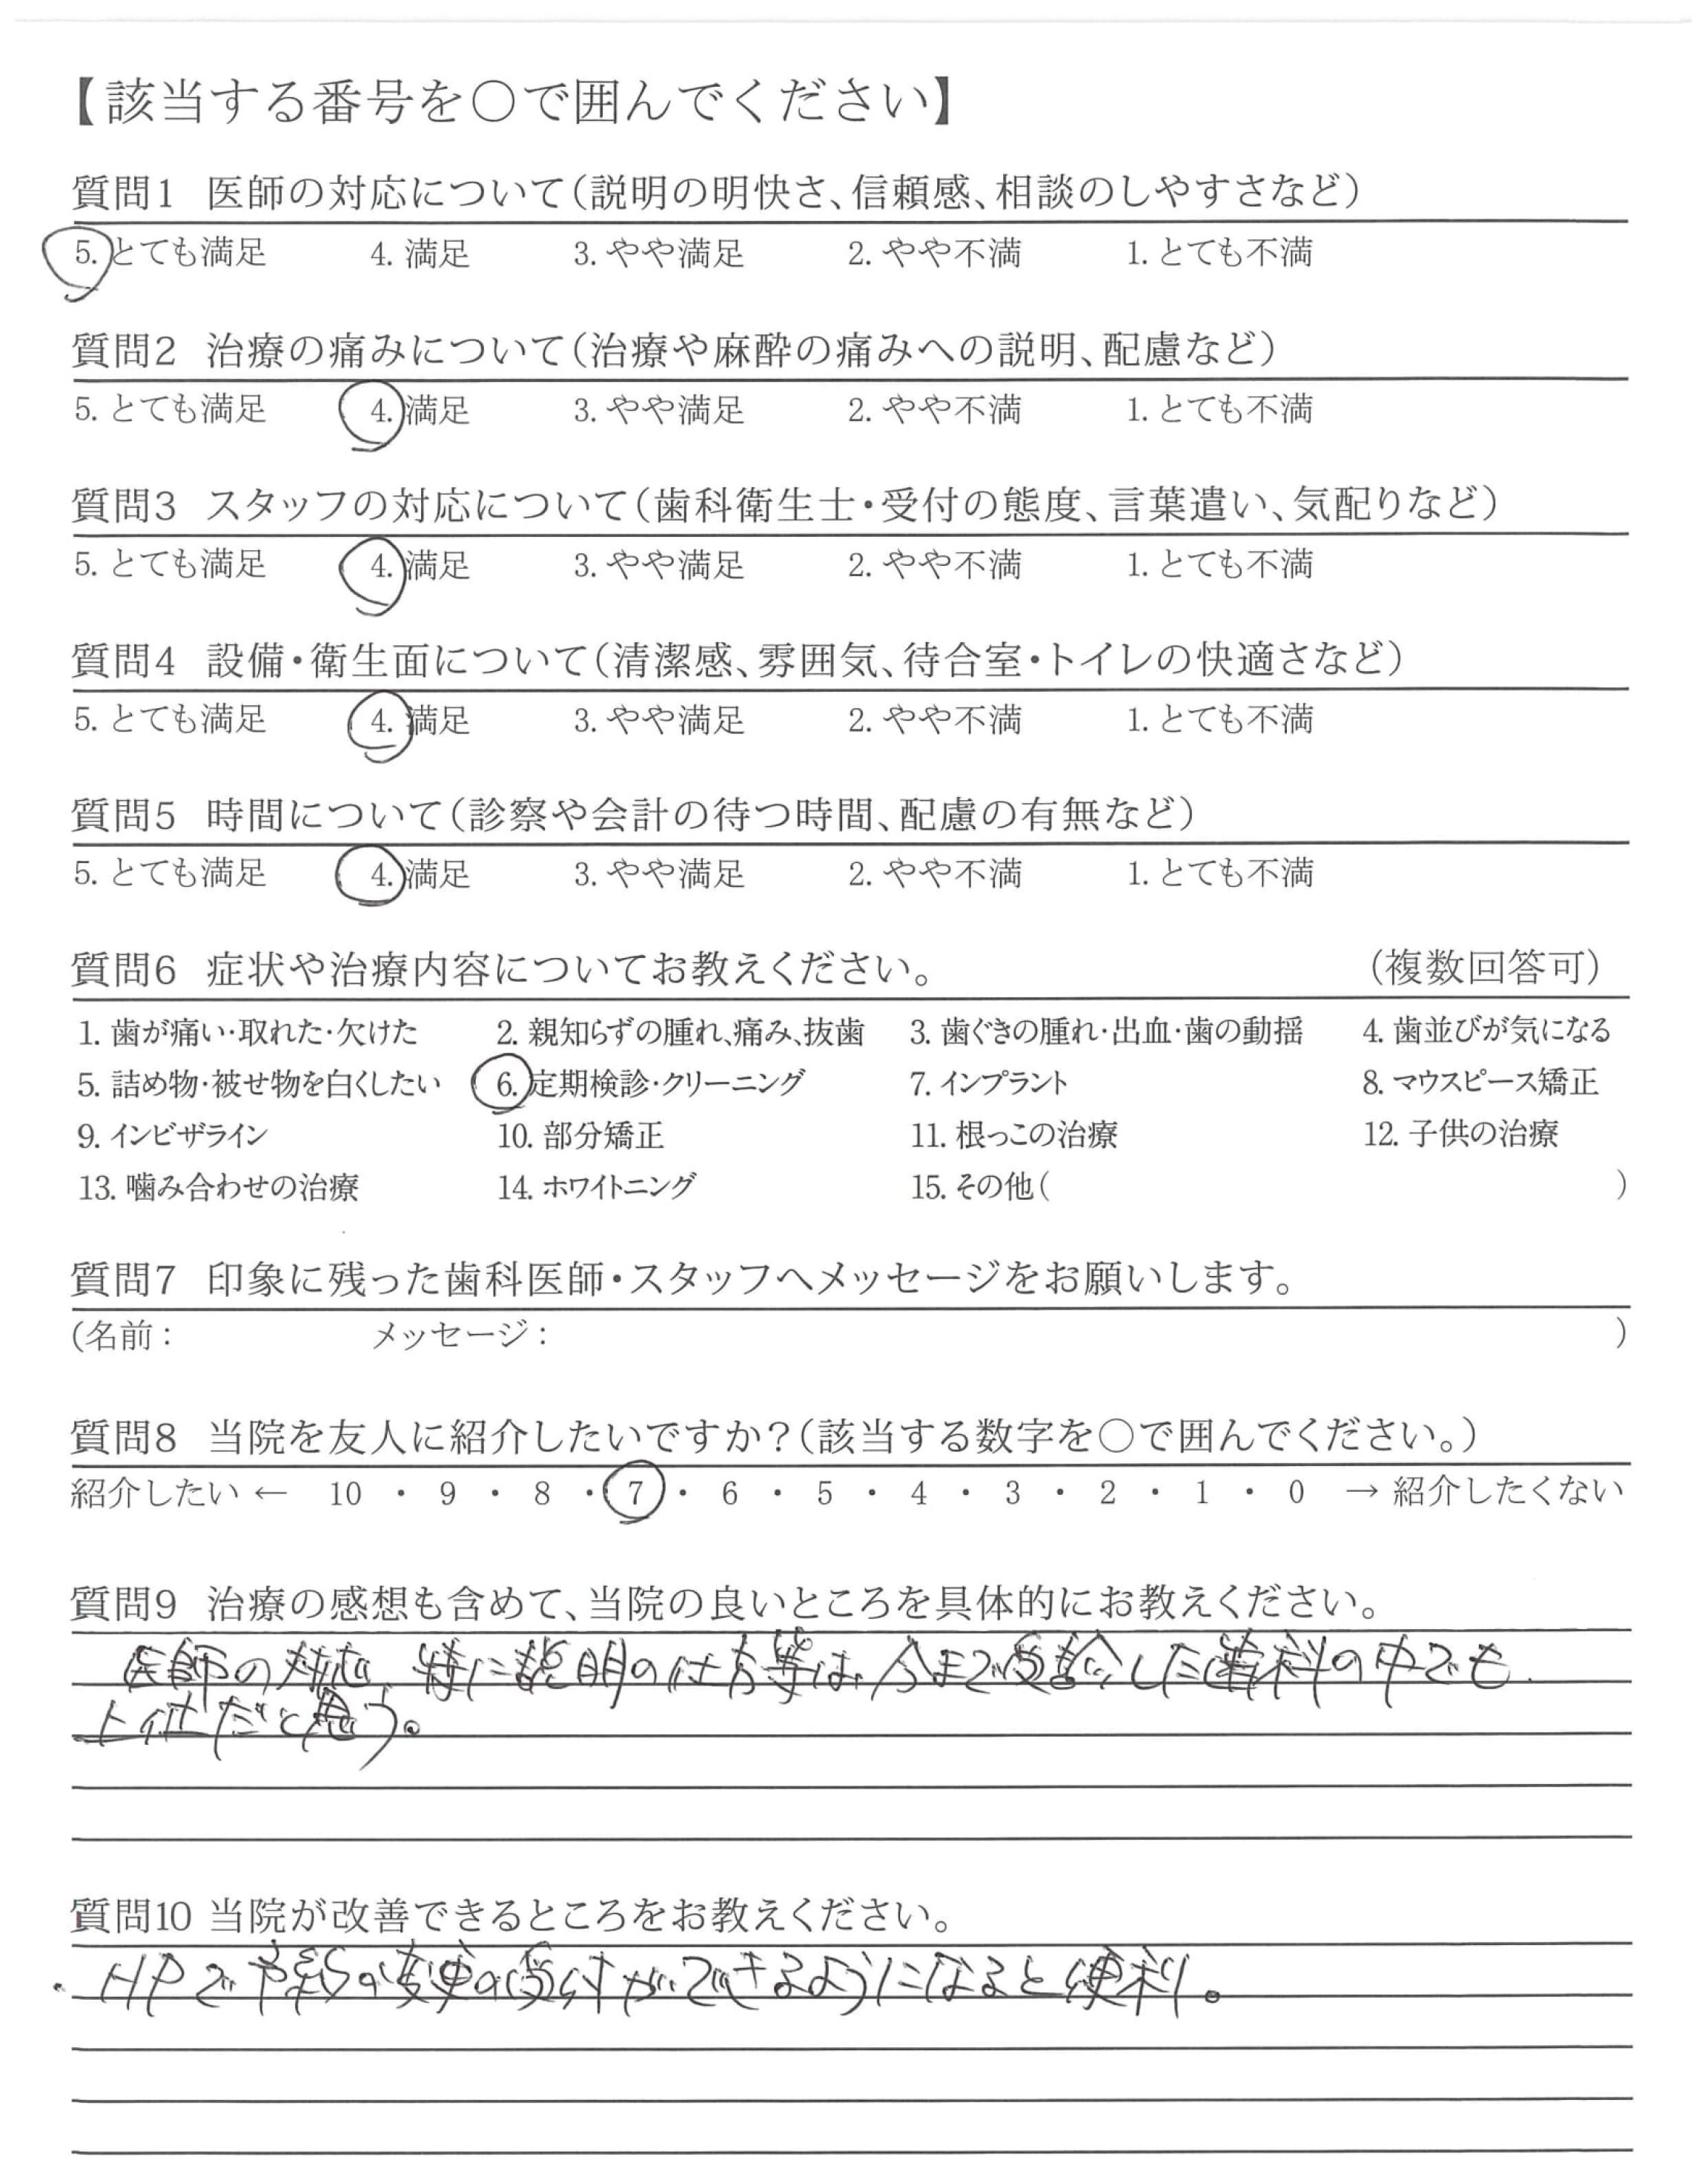 【該当する番号を〇で囲んでください】
質問1 医師の対応について(説明の明快さ、信頼感、相談のしやすさなど)
5. とても満足 4. 満足 3. やや満足 2. やや不満 1. とても不満
質問2 治療の痛みについて(治療や麻酔の痛みへの説明、配慮など)
5. とても満足 4. 満足 3. やや満足 2. やや不満 1. とても不満
質問3 スタッフの対応について(歯科衛生士・受付の態度、言葉遣い、気配りなど)
5. とても満足 4. 満足 3. やや満足 2. やや不満 1. とても不満
質問4 設備・衛生面について(清潔感、雰囲気、待合室・トイレの快適さなど)
5. とても満足 4. 満足 3. やや満足 2. やや不満 1. とても不満
質問5 時間について(診察や会計の待つ時間、配慮の有無など)
5. とても満足 4. 満足 3. やや満足 2. やや不満 1. とても不満
質問6 症状や治療内容についてお教えください。 (複数回答可)
1. 歯が痛い・取れた・欠けた 2. 親知らずの腫れ、痛み、抜歯 3. 歯ぐきの腫れ・出血・歯の動揺 4. 歯並びが気になる
5. 詰め物・被せ物を白くしたい 6. 定期検診・クリーニング 7. インプラント 8. マウスピース矯正
9. インビザライン 10. 部分矯正 11. 根っこの治療 12. 子供の治療
13. 噛み合わせの治療 14. ホワイトニング 15. その他( )
質問7 印象に残った歯科医師・スタッフへメッセージをお願いします。
(名前: メッセージ: )
質問8 当院を友人に紹介したいですか?(該当する数字を〇で囲んでください。)
紹介したい ← 10 ・ 9 ・ 8 ・ 7 ・ 6 ・ 5 ・ 4 ・ 3 ・ 2 ・ 1 ・ 0 → 紹介したくない
質問9 治療の感想も含めて、当院の良いところを具体的にお教えください。
医師の対応、特に説明の仕方等は今まで受診した歯科の中でも
上位だと思う。
質問10 当院が改善できるところをお教えください。
・HPで予約の変更の受付ができるようになると便利。